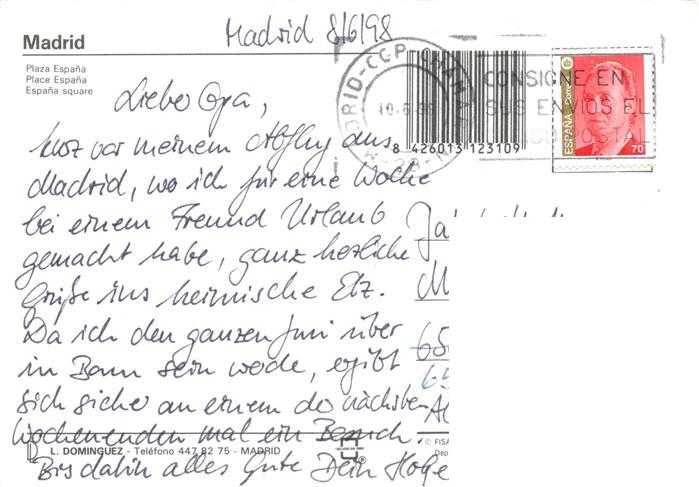 Madrid
Plaza España
Place España
España square
Madrid 8/6/98
MADRID-CCP CHAMA
10.6.98
M-28-
CONSIGNE EN
SUS ENVIOS EL
POSTAL
ESPAÑA Correo
70
8 426013 123109
Liebe Opa,
kurz vor meinem Abflug aus
Madrid, wo ich für eine Woche
bei einem Freund Urlaub
gemacht habe, ganz herzliche
Grüße ins heimische Etz.
Da ich den ganzen Juni über
in Bann sein werde, ergibt
sich sicher an einem der nächsten
Wochenenden mal ein Besuch.
Bis dahin alles Gute Dein Holge
Ja
M
65
65
L. DOMINGUEZ - Teléfono 447 82 75 - MADRID
© FISA
Dep